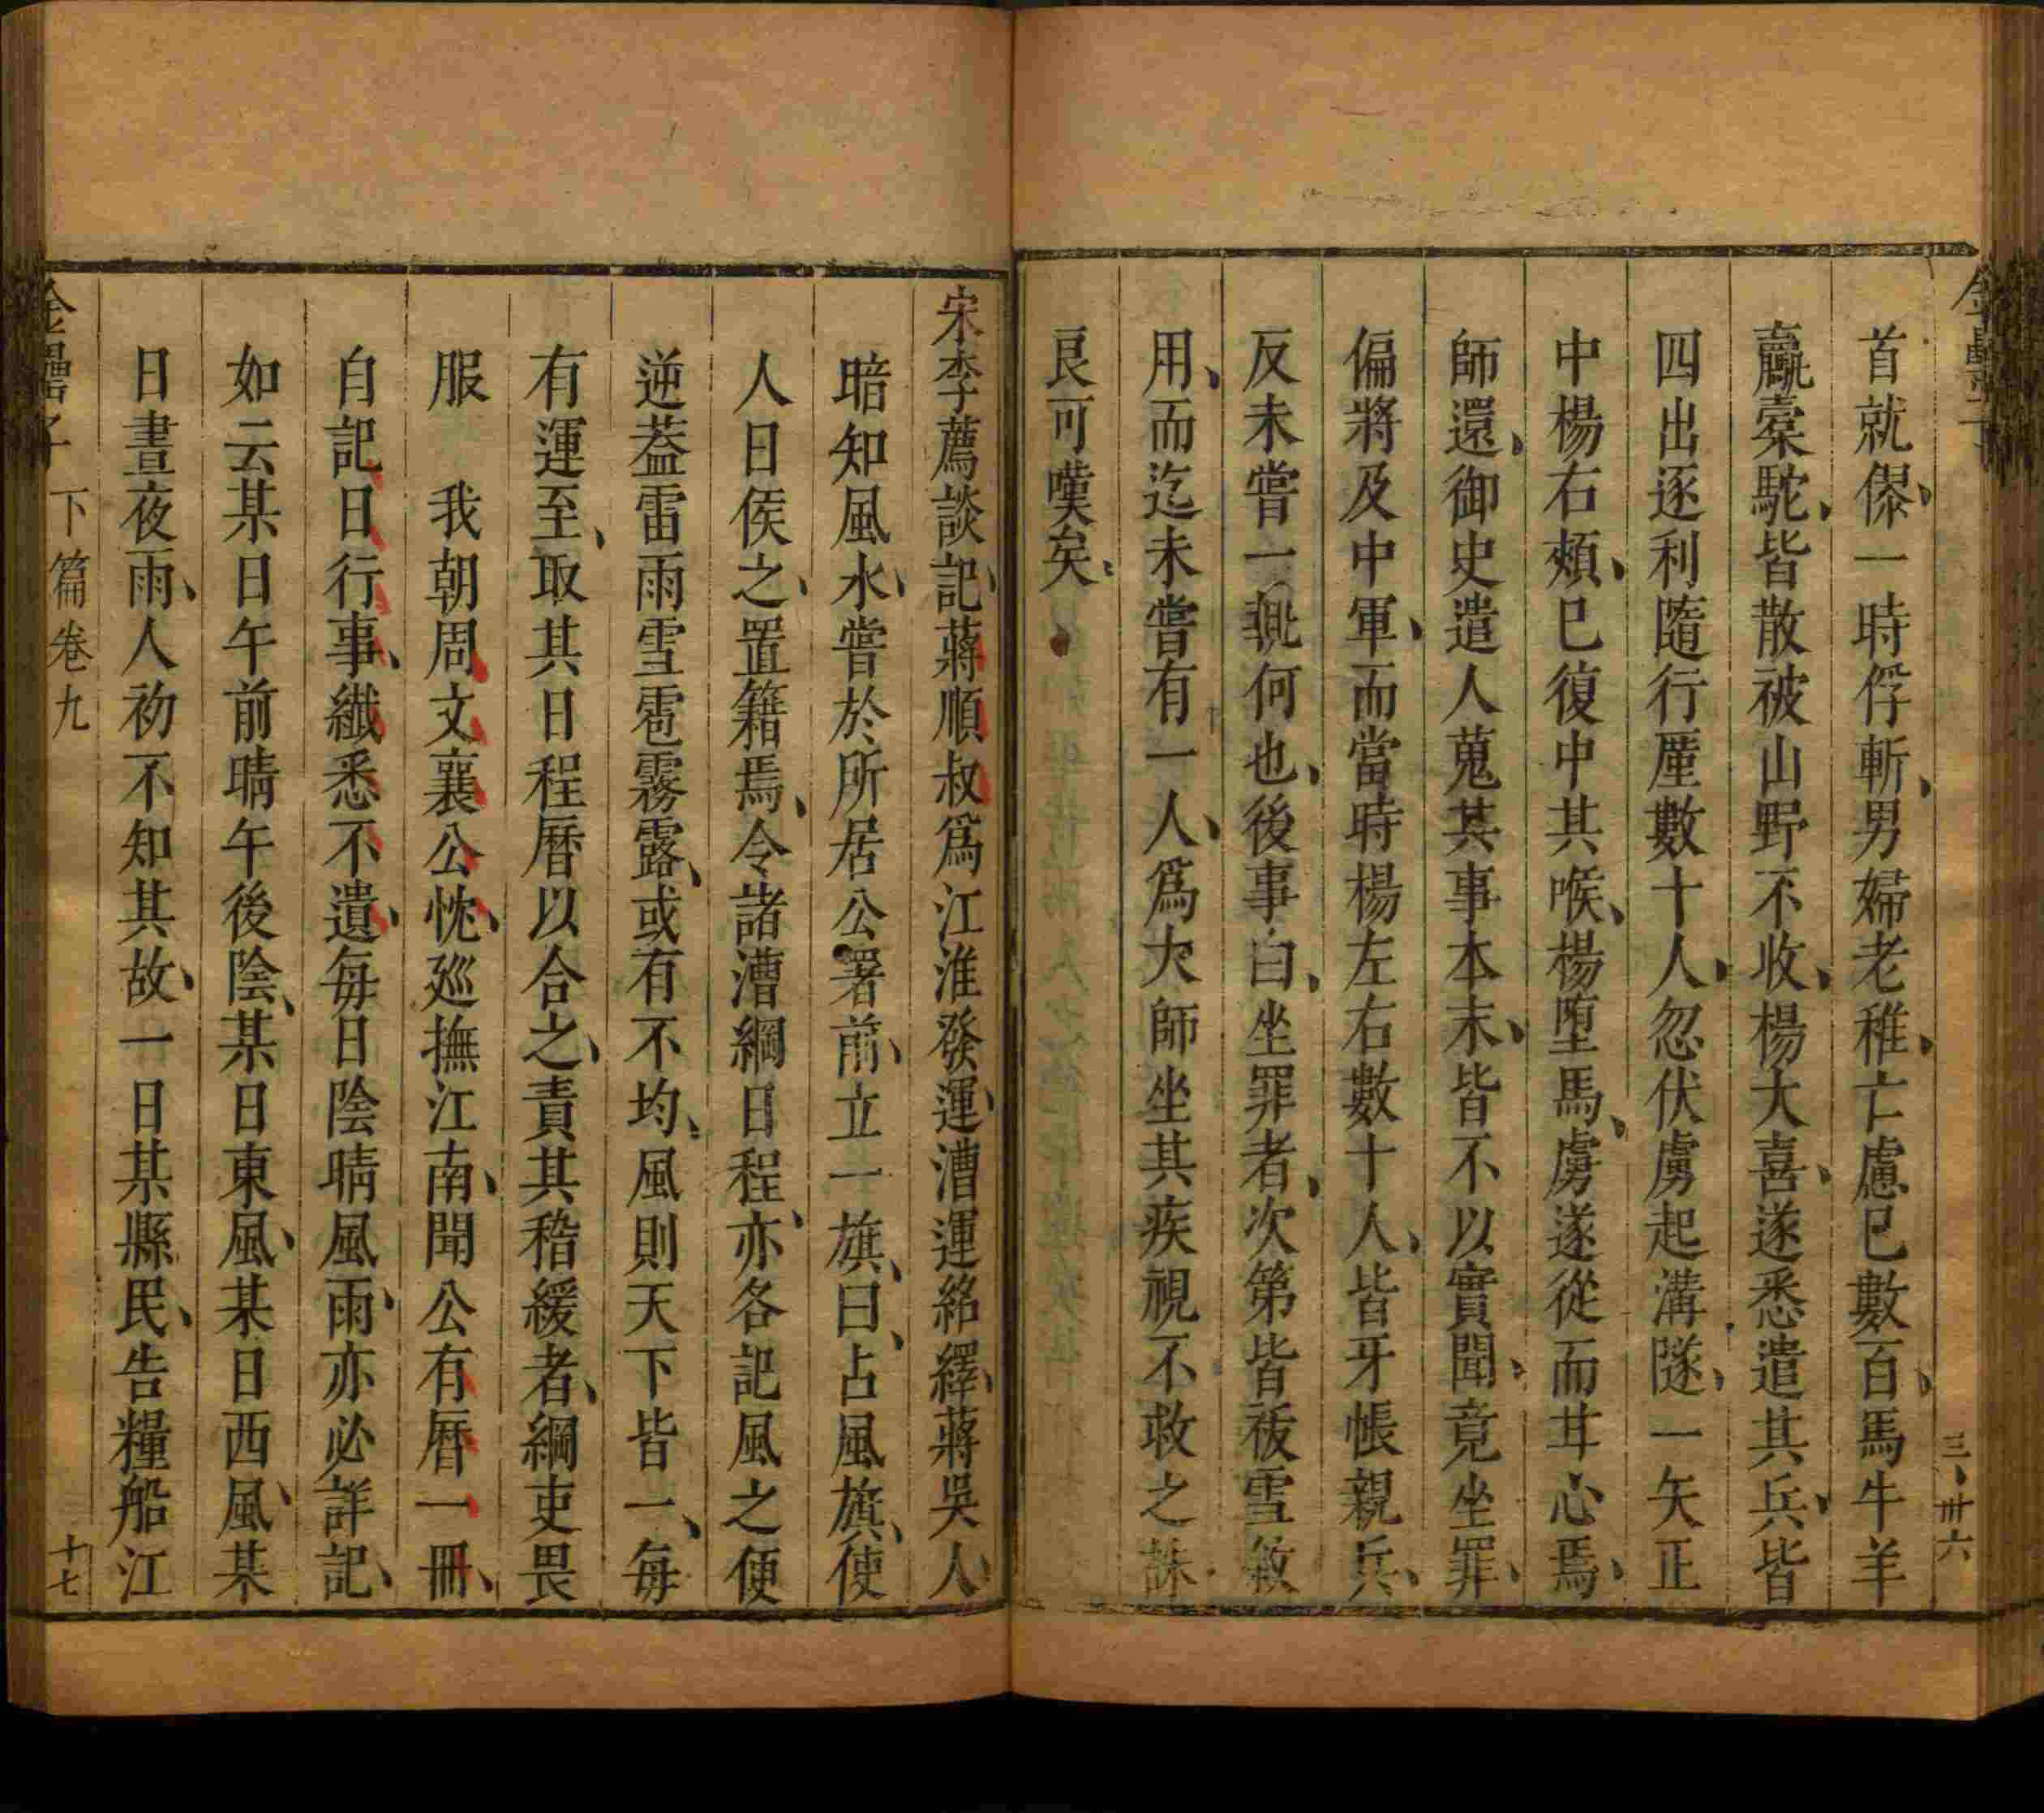 首就傑一時俘斬男婦老稚亡慮已數百馬牛羊
驘槖駝皆散被山野不收楊大喜遂悉遣其兵皆
四出逐利隨行厪數十人忽伏虜起溝隧一矢正
中楊右頰巳復中其喉楊堕馬虜遂從而甘心焉
師還御史遣人蒐其事本末皆不以實聞竟坐罪
偏將及中軍而當時楊左右數十人皆牙帳親兵
反未嘗一何也後事白坐罪者次第皆祓雪敘
用而迄未嘗有一人爲大師坐其疾視不救之誅
良可嘆矣
宋李薦談記蔣順叔爲江淮發運漕運絡繹蔣吳人
暗知風水嘗於所居公署前立一旗曰占風旗使
人日𠋫之置籍焉令諸漕綱日程亦各記風之便
逆葢雷雨雪雹霧露或有不均風則天下皆一每
有運至取其日程曆以合之責其稽緩者綱吏畏
服　我朝周文襄公忱廵撫江南聞公有曆一冊
自記日行事纖悉不遺每日陰晴風雨亦必詳記
如云某日午前晴午後陰某日東風某日西風某
日晝夜雨人初不知其故一日某縣民告糧船江
金罍子　下篇卷九　十七